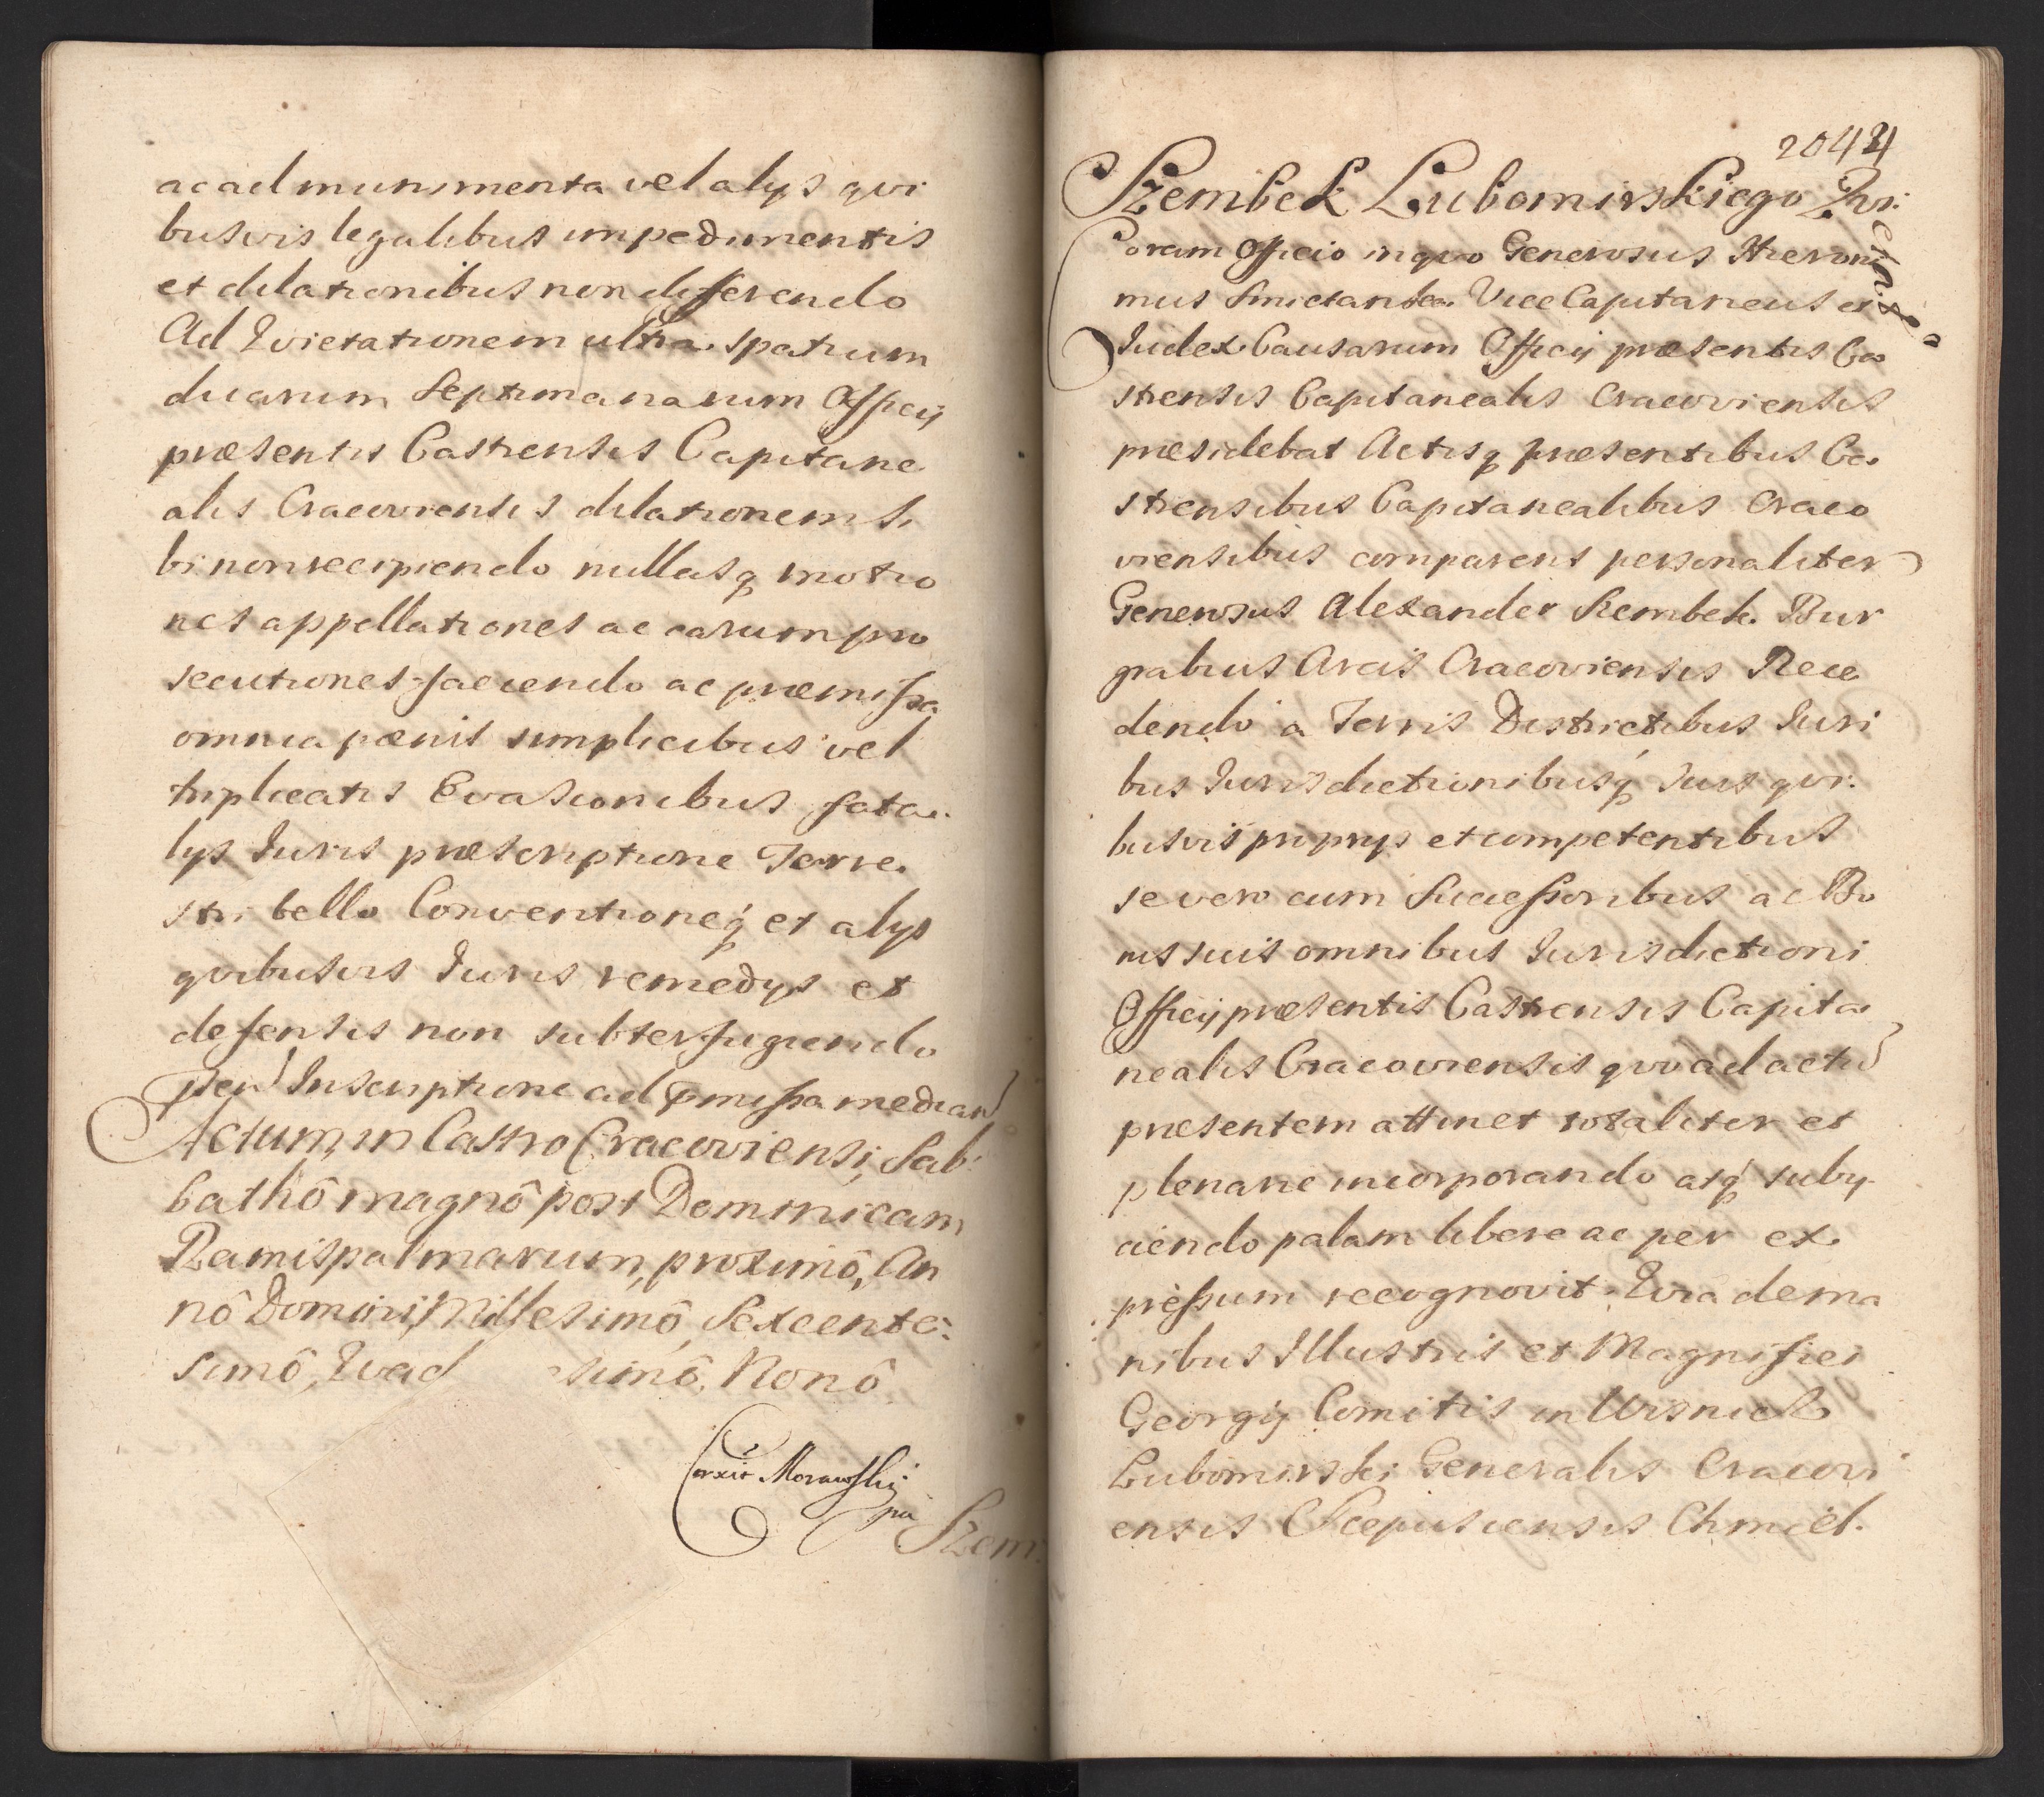 ac ad munimenta vel alys qvi
busvis legalibus impedimentis
et dilationibus non differendo
Ad Evictationem ultra spatium
duarum Septimanarum Officy
præsentis Castrensis Capitane
alis Cracoviensis dilationem si
bi non recipiendo nullasq motio
nes appellationes ac earum pro
secutiones faciendo ac præmissa
omnia pænis simplicibus vel
triplicatis Evasionibus fata
lys Juris præscriptione Terre
stri bello Conventioneq et alys
qvibusvis Juris remedys et
defensis non subterfugiendo
Inscriptione ad pmissa median
Actum in Castro Cracoviensi, Sab:
bathô magnô post Dominicam
Ramispalmarum, proximô, An
nô Domini, Millesimô, Sexcente:
simô, simô, Nonô
Corxit Morawskij
pa
Szem
2044
Szembek Lubomirskiego Zwi:
Coram Officio in quo Generosus Hieroni
mus Smietanka Vice Capitaneus et
Judex Causarum Officy præsentis Ca
strensis Capitanealis Cracoviensis
præsidebat Actisq præsentibus Ca
strensibus Capitanealibus Craco
viensibus comparens personaliter
Generosus Alexander Szembek Bur
grabius Arcis Cracoviensis Rece
dendo a Terris Districtibus Juri
bus Jurisdictionibusq suis qvi:
busvis proprys et competentibus
se vero cum Successoribus ac Bo
nis suis omnibus Jurisdictioni
Officy præsentis Castrensis Capita
nealis Cracoviensis qvo ad actu
præsentem attinet totaliter et
plenarie incorporando atq suby
ciendo palam libere ac per ex
pressum recognovit Qvia de ma
nibus Illustris et Magnifici
Georgy Comitis in Wisnicz
Lubomirski Generalis Cracovi
ensis Scepusiensis Chmiel.